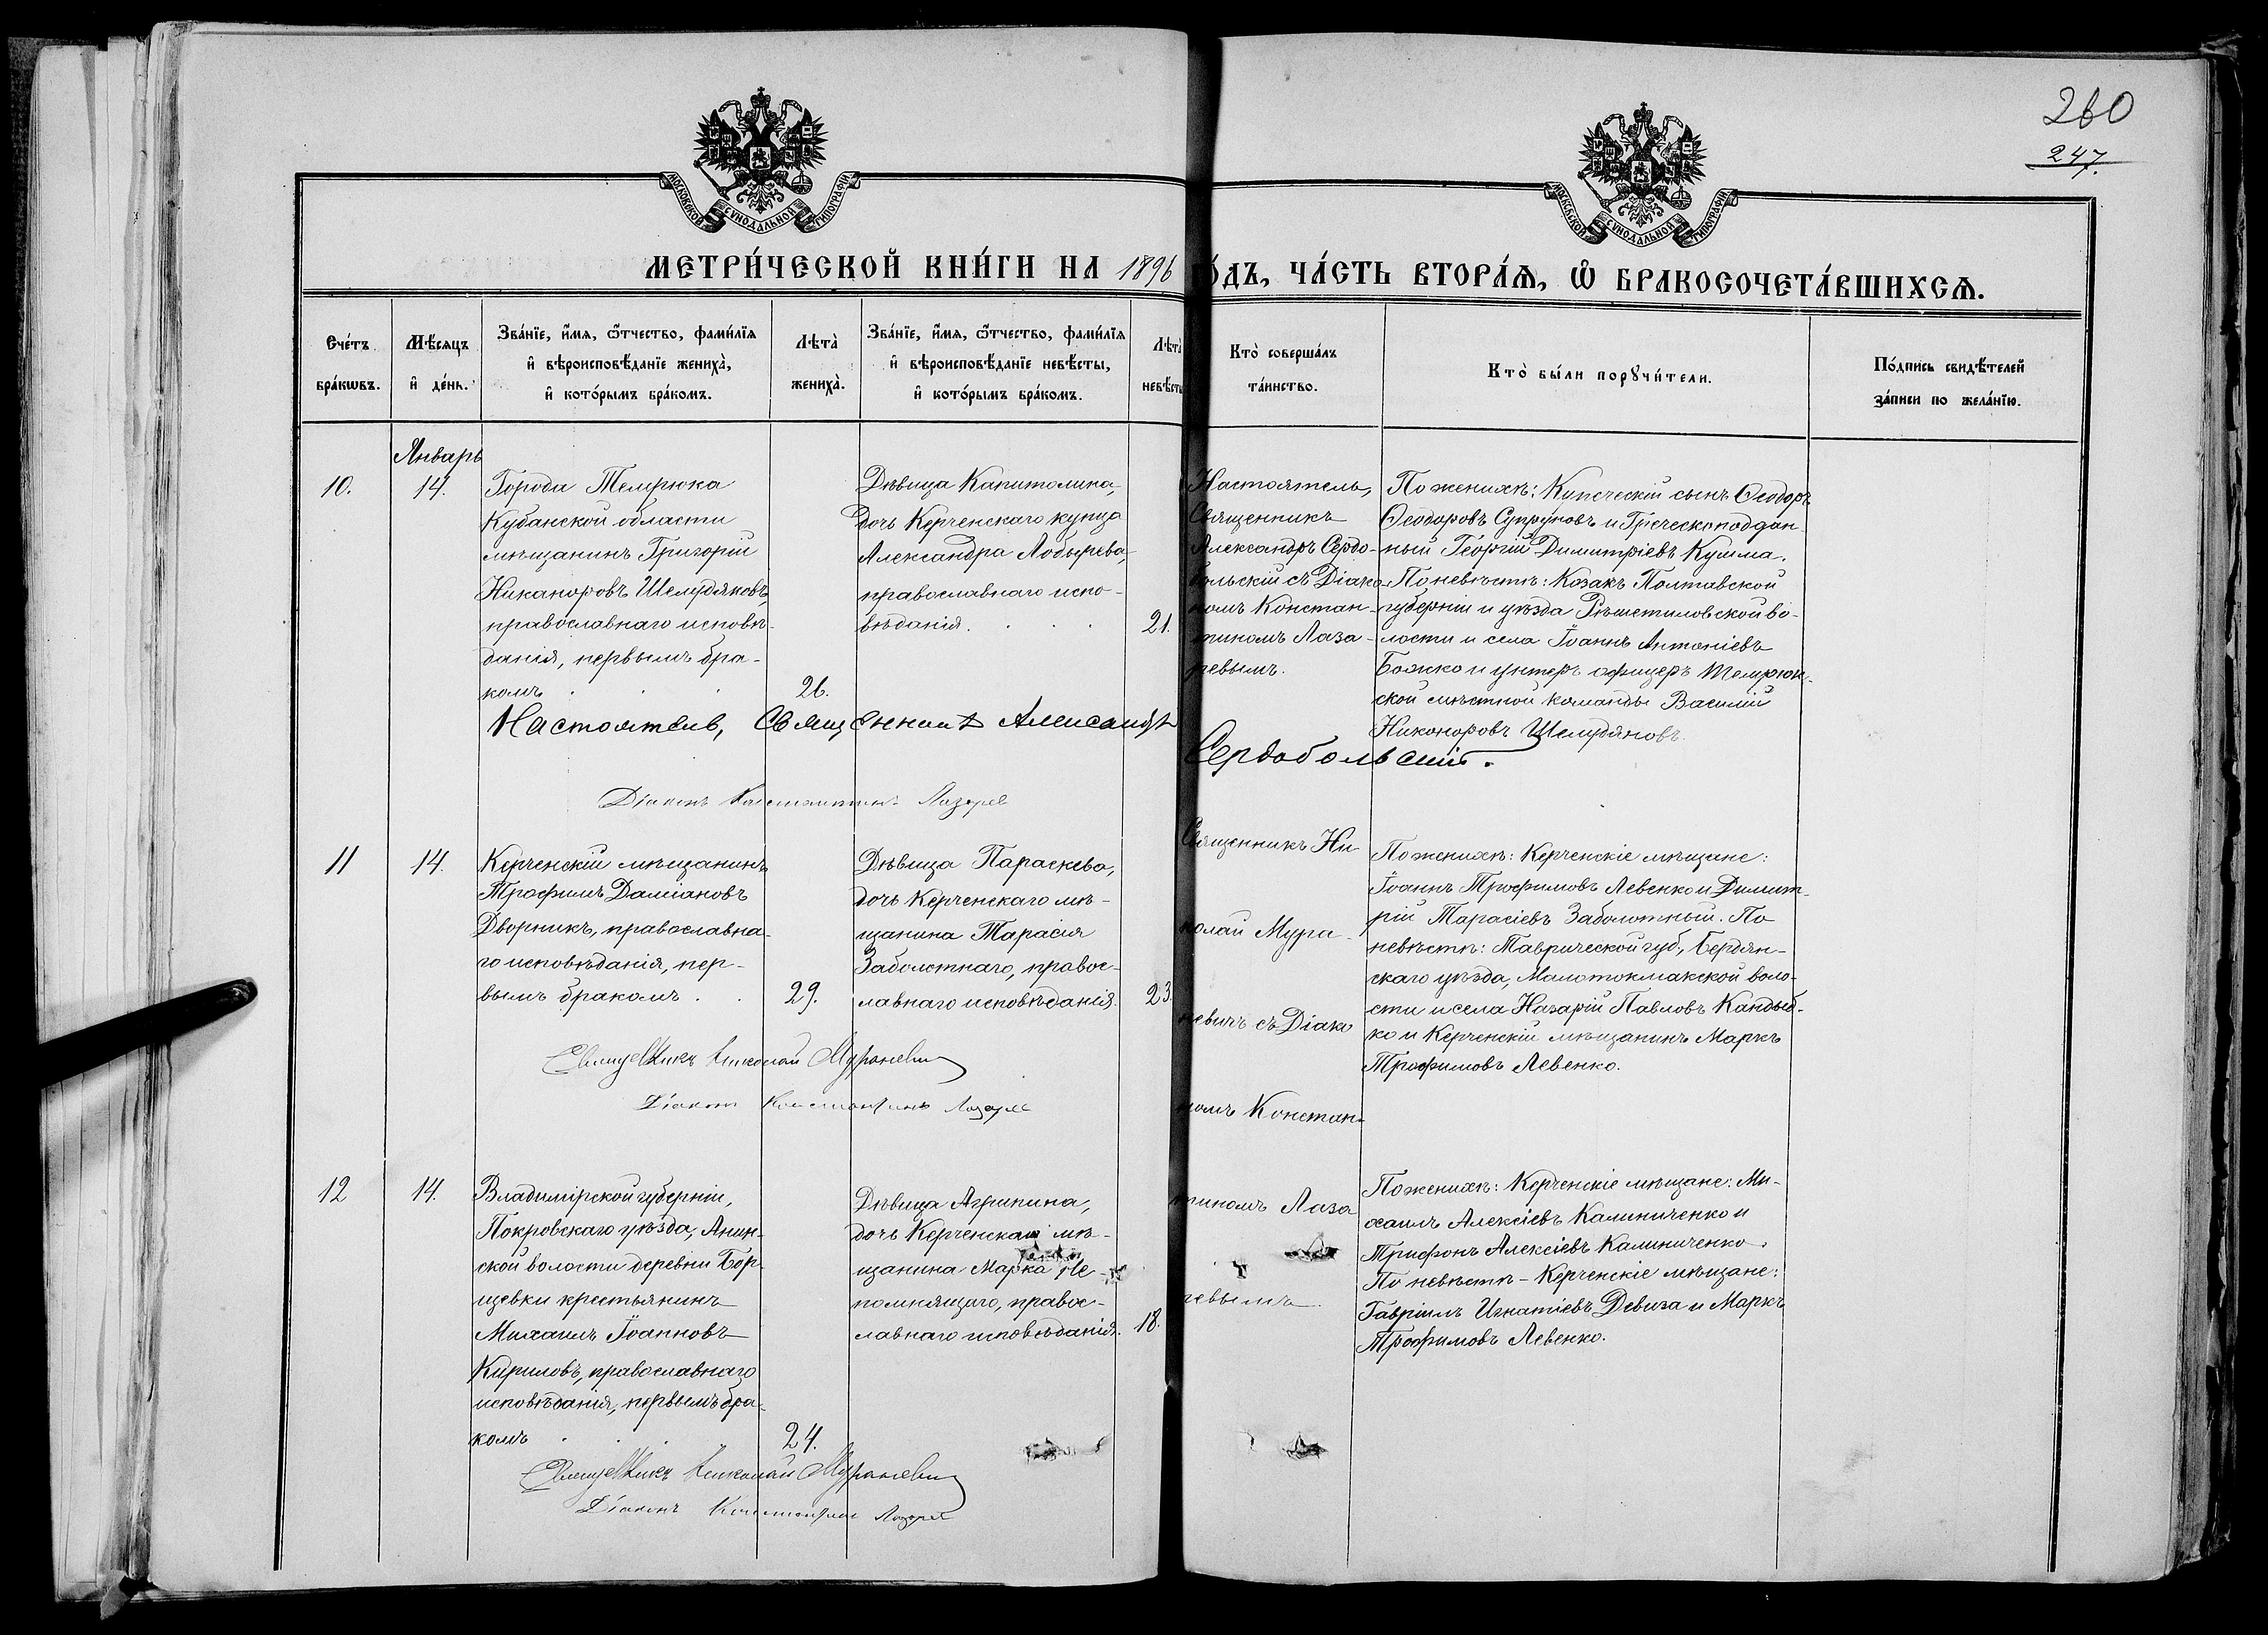 260
247.
МОСКОВСКОЙ СѴНОДАЛЬНОЙ ТИПОГРАФІИ
МОСКОВСКОЙ СѴНОДАЛЬНОЙ ТИПОГРАФІИ
МЕТРИ́ЧЕСКОЙ КНИ́ГИ НА 1896 ГО́ДЪ, ЧА́СТЬ ВТОРА́Ѧ, Ѽ БРАКОСОЧЕТА́ВШИХСѦ.
Сче́тъ
бра́кѡвъ.
Мѣ́сяцъ
и҆ де́нь.
Зва́нїе, и҆́мя, ѻ҆́тчество, фами́лїя
и҆ вѣроисповѣ́данїе жениха̀,
и҆ кото́рымъ бра́комъ.
Лѣта̀
жениха̀.
Зва́нїе, и҆́мя, ѻ҆́тчество, фами́лїя
и҆ вѣроисповѣ́данїе невѣ́сты,
и҆ кото́рымъ бра́комъ.
Лѣта̀
невѣ́сты
Кто̀ соверша́лъ
та́инство.
Кто̀ бы́ли порꙋчи́тели.
По́дпись свидѣ́телей
за́писи по жела́нїю.
Январь
10.
14.
Города Темрюка
Кубанской области
мѣщанинъ Григорій
Никаноровъ Шелудяковъ,
православнаго исповѣ-
данія, первымъ бра-
комъ . . .
26.
Дѣвица Капитолина,
дочь Керченскаго купца
Александра Лобырева,
православнаго испо-
вѣданія . . . .
21.
Настоятель,
Священникъ
Александръ Сердо-
больскій съ Діако-
номъ Констан-
тиномъ Лаза-
ревымъ.
По женихѣ: Купеческій сынъ Ѳеодоръ
Ѳеодоровъ Супруновъ и Греческоподдан-
ный Георгій Димитріевъ Кумма.
По невѣстѣ: Козакъ Полтавской
губерніи и уѣзда Рѣшетиловской во-
лости и села Іоаннъ Антоніевъ
Божко и унтеръ офицеръ Темрюк-
ской мѣстной команды Василій
Никоноровъ Шелудяковъ.
Настоятель, Священникъ Александръ
Сердобольскій.
Діаконъ Константинъ Лазаре
11
14.
Керченскій мѣщанинъ
Трофимъ Даміановъ
Дворникъ, православна-
го исповѣданія, пер-
вымъ бракомъ . .
29.
Дѣвица Параскева,
дочь Керченскаго мѣ-
щанина Тарасія
Заболотнаго, правос-
лавнаго исповѣданія.
23.
Священникъ Ни
колай Мура-
невичъ съ Діако
номъ Констан-
тиномъ Лаза
ревымъ.
По женихѣ: Керченскіе мѣщане:
Іоаннъ Трофимовъ Левенко и Димит-
рій Тарасіевъ Заболотный. По
невѣстѣ: Таврической губ., Бердян-
скаго уѣзда, Малотокмакской воло-
сти и села Назарій Павловъ Кандыб-
ко и Керченскій мѣщанинъ Маркъ
Трофимовъ Левенко.
Священникъ Николай Мураневич
Діаконъ Константинъ Лазаре
12
14.
Владимірской губерніи,
Покровскаго уѣзда, Анин-
ской волости деревни Бор-
щевки крестьянинъ
Михаилъ Іоанновъ
Кириловъ, православнаго
исповѣданія, первымъ бра-
комъ . . .
24.
Дѣвица Агрипина,
дочь Керченскаго мѣ-
щанина Марка Не-
помнящаго, правос-
лавнаго исповѣданія.
18.
По женихѣ: Керченскіе мѣщане: Ми-
хаилъ Алексіевъ Калиниченко и
Трифонъ Алексіевъ Калиниченко.
По невѣстѣ - Керченскіе мѣщане:
Гавріилъ Игнатіевъ Девиза и Маркъ
Трофимовъ Левенко.
Священникъ Николай Мураневич
Діаконъ Константинъ Лазаре